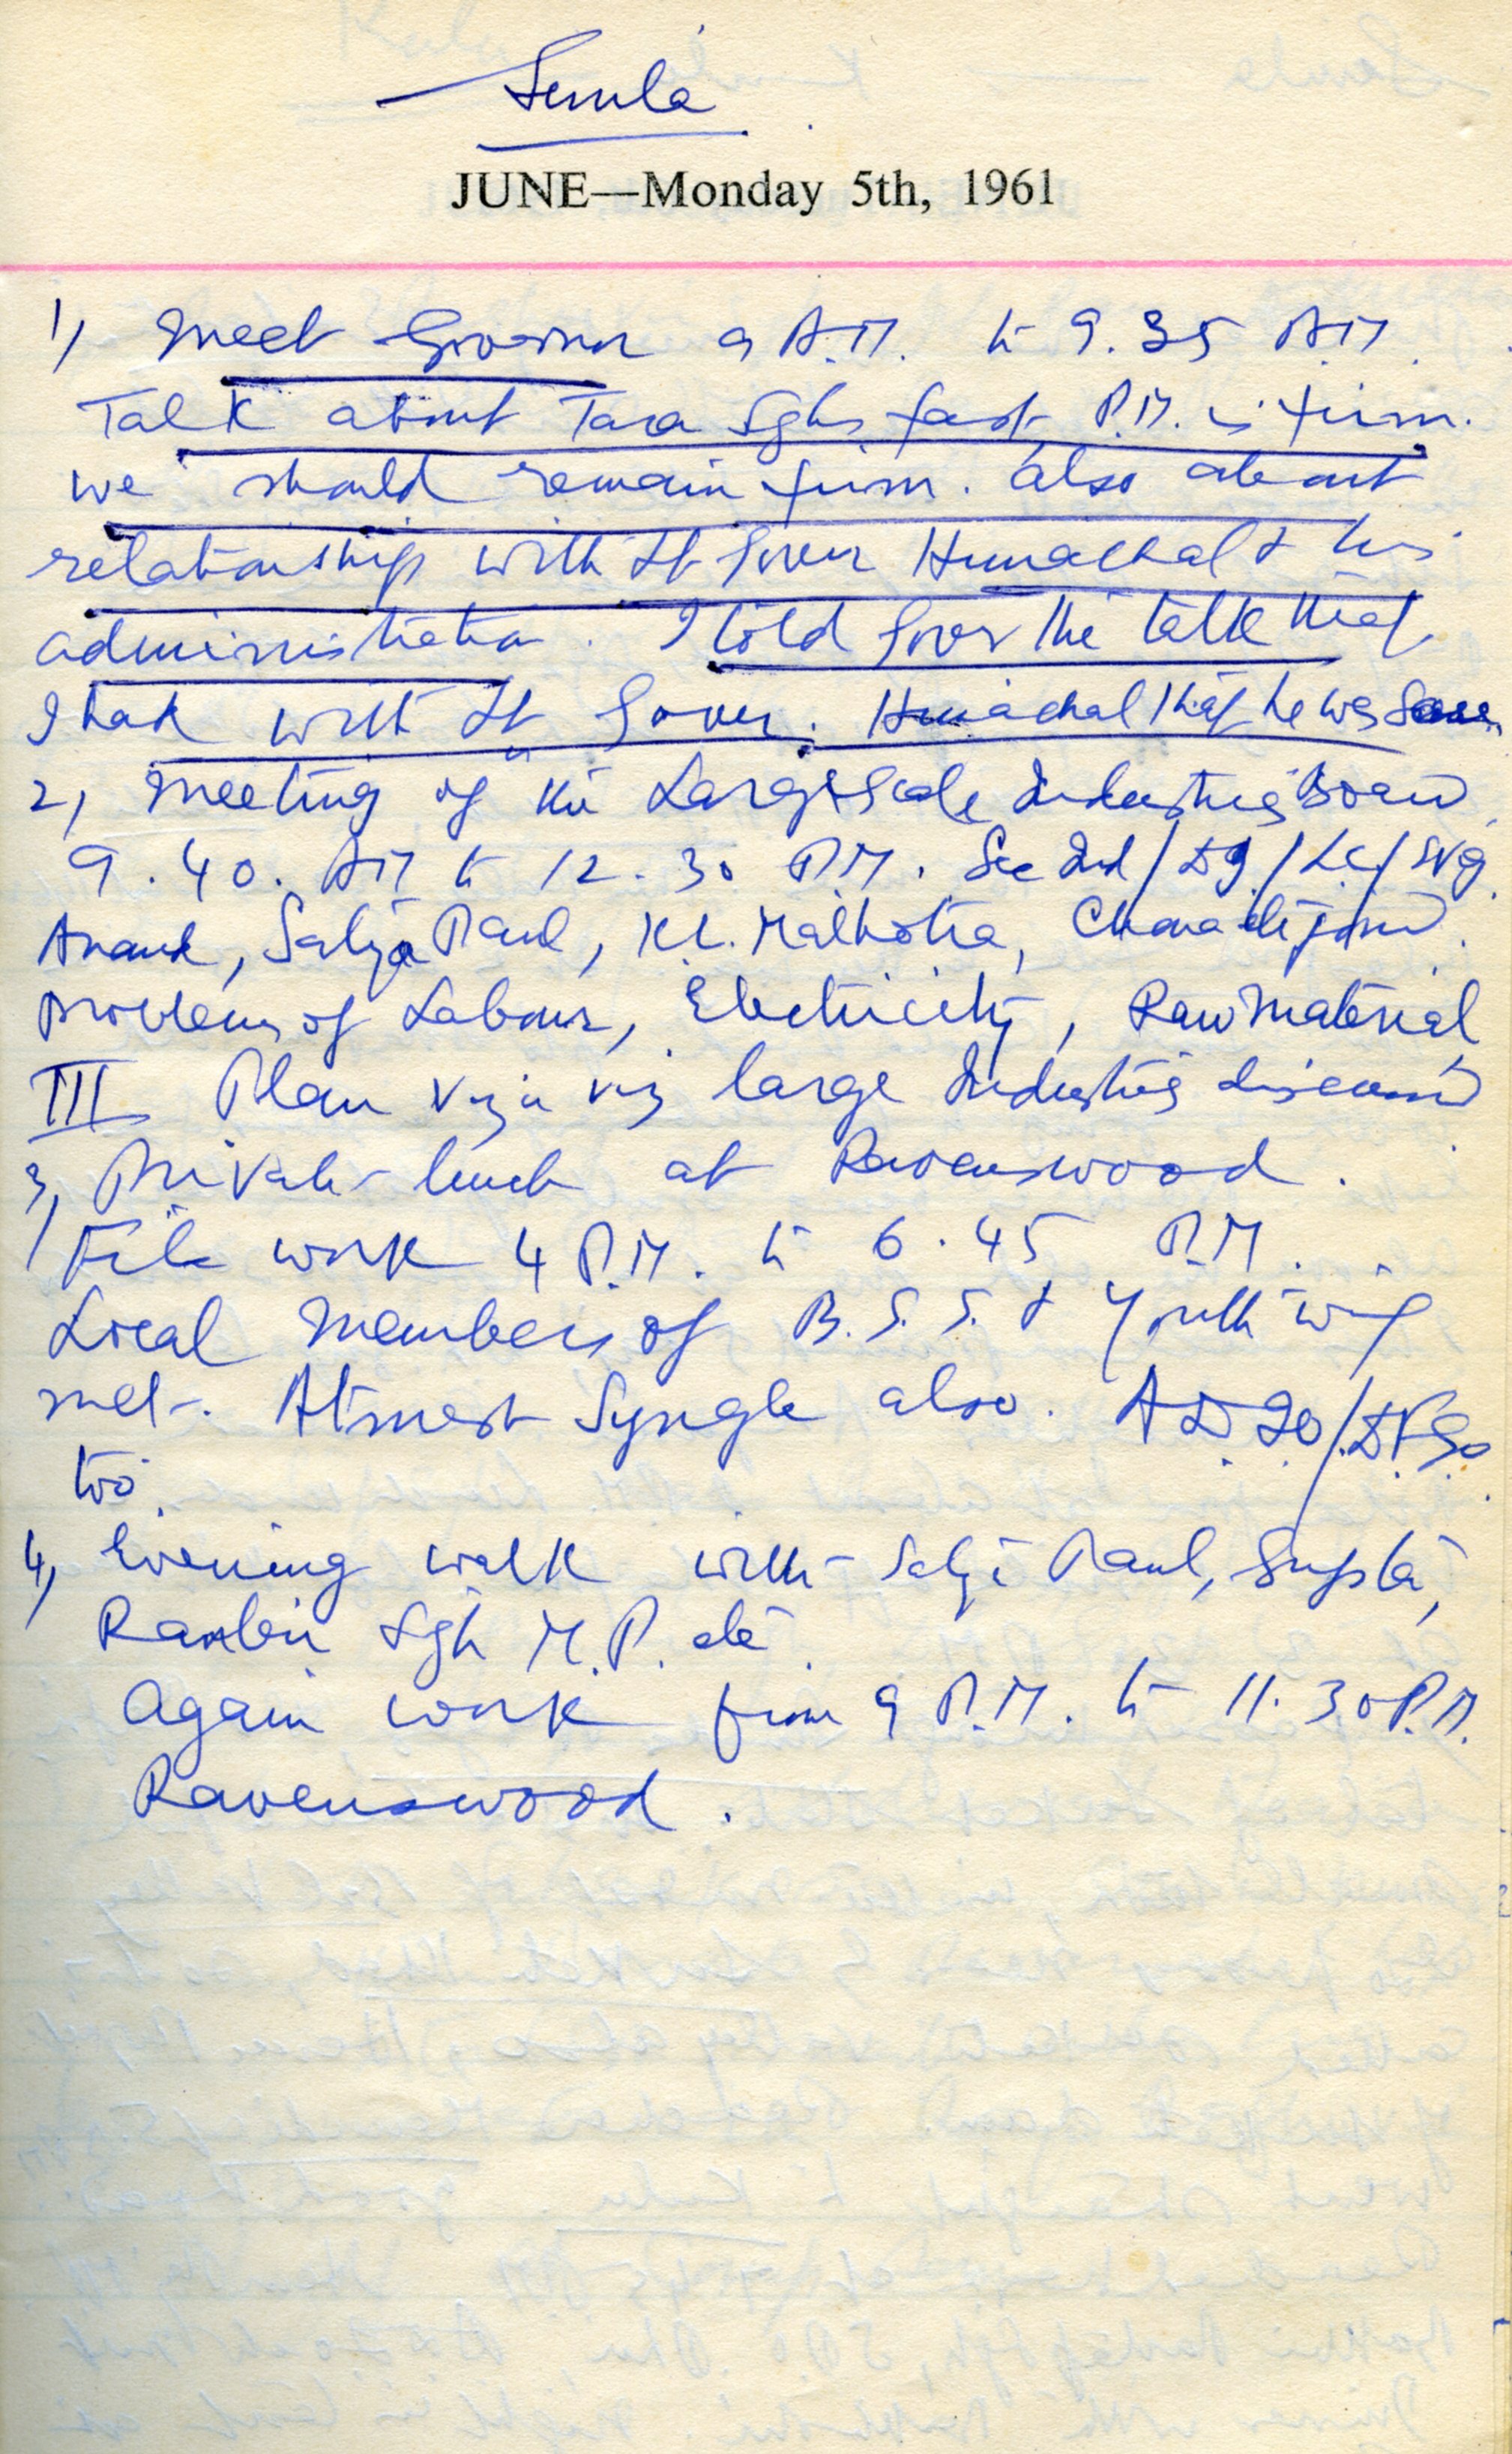 Simla
JUNE—Monday 5th, 1961
1) Meet Governor 9 A.M. to 9.35 A.M.
Talk about Tara Sghs fast P.M. is firm.
We should remain firm. Also about
relationship with Lt Gover Himachal & his
administration. I told Gover the talk that
I had with Lt Gover. Himachal that he was
2) Meeting of the Large Scale Industries Board
9.40. AM to 12.30 P.M. See Ind / D.I. / L.C /
Anand, Satya Paul, K.L. Malhotra, joined.
Problems of Labour, Electricity, Raw Material
III Plan vis a vis large Industries discussed
3) Private lunch at Ravenswood.
File work 4 P.M. to 6.45 P.M.
Local Members of B.S.S. & Youth wing
met. Syngle also. A.D.
too.
4) Evening walk with Satya Paul, Gupta,
Ranbir Sgh M.P. etc.
Again work from 9 P.M. to 11.30 P.M.
Ravenswood.